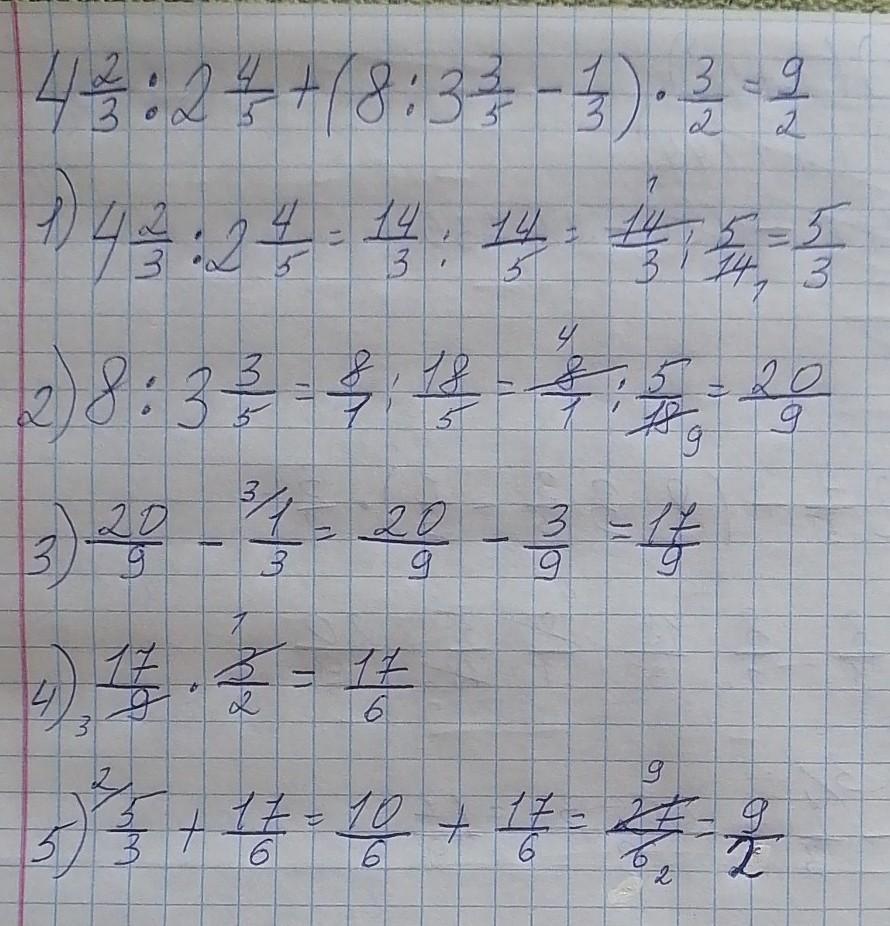 4 2/3 : 2 4/5 + (8 : 3 3/5 - 1/3) · 3/2 = 9/2
1) 4 2/3 : 2 4/5 = 14/3 : 14/5 = 14/3 1 : 5/14 1 = 5/3
2) 8 : 3 3/5 = 8/1 : 18/5 = 8/1 4 : 5/18 9 = 20/9
3) 20/9 - 3/ 1/3 = 20/9 - 3/9 = 17/9
4) 17/9 3 · 3/2 1 = 17/6
5) 2/ 5/3 + 17/6 = 10/6 + 17/6 = 27/6 9 2 = 9/2